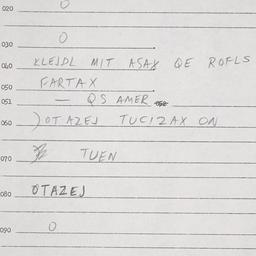 020 0
030 0
040 KLEJDL MIT ASAX QE ROFLS
050 FARTAX
051 — QS AMER
060 )OTAZEJ TUCIZAX ON
070 TUEN
080 OTAZEJ
090 0